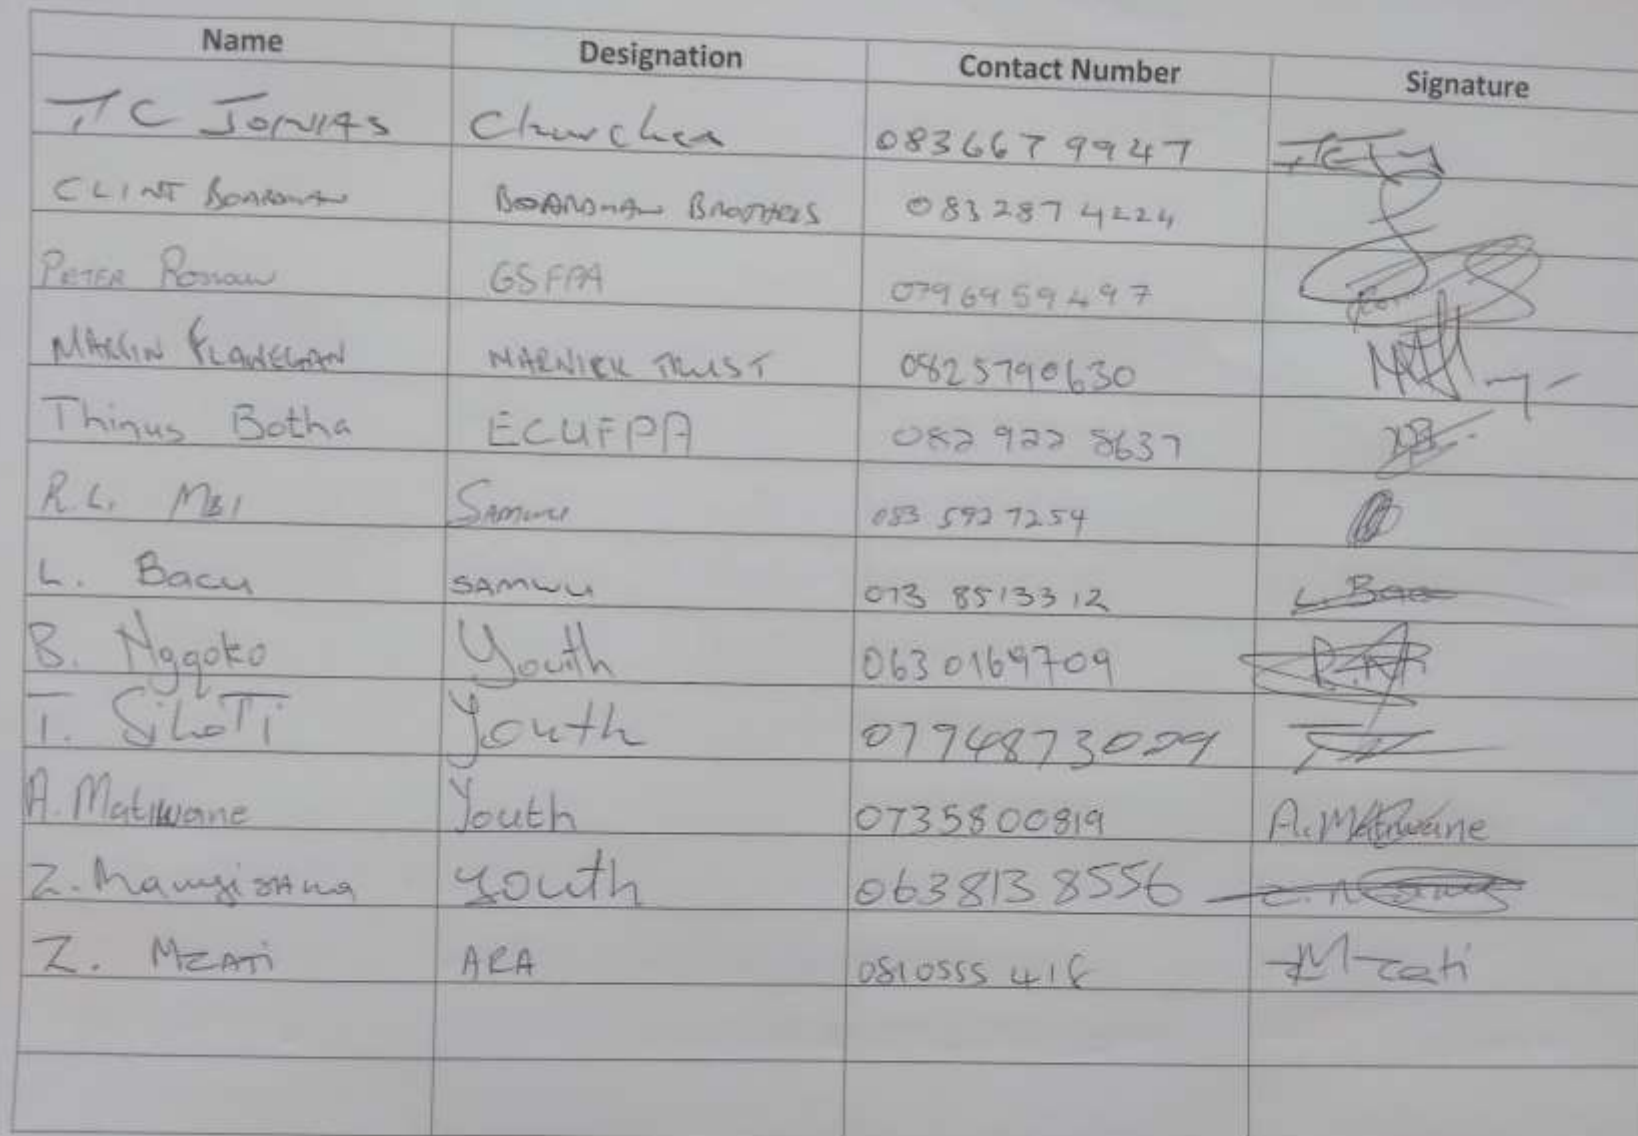 Name Designation Contact Number Signature
TC JONAS Churches 083667 9947
CLINT BOARDMAN BOARDMAN BROTHERS 083 287 4224
PETER GSFPA 0796959497
MARTIN FLANEGAN MARNICK TRUST 0825790630
Thinus Botha ECUFPA 082 922 8637
R.L. SAMWU 083 5927254
L. Bacu SAMWU 073 8513312
B. Nqqoko Youth 0630169709
T. SihoTi Youth 0794873029
A. Matiwane Youth 0735800819 A. Matiwane
Z. youth 063813 8556
Z. MZATI ARA 0810555 418 Mzati